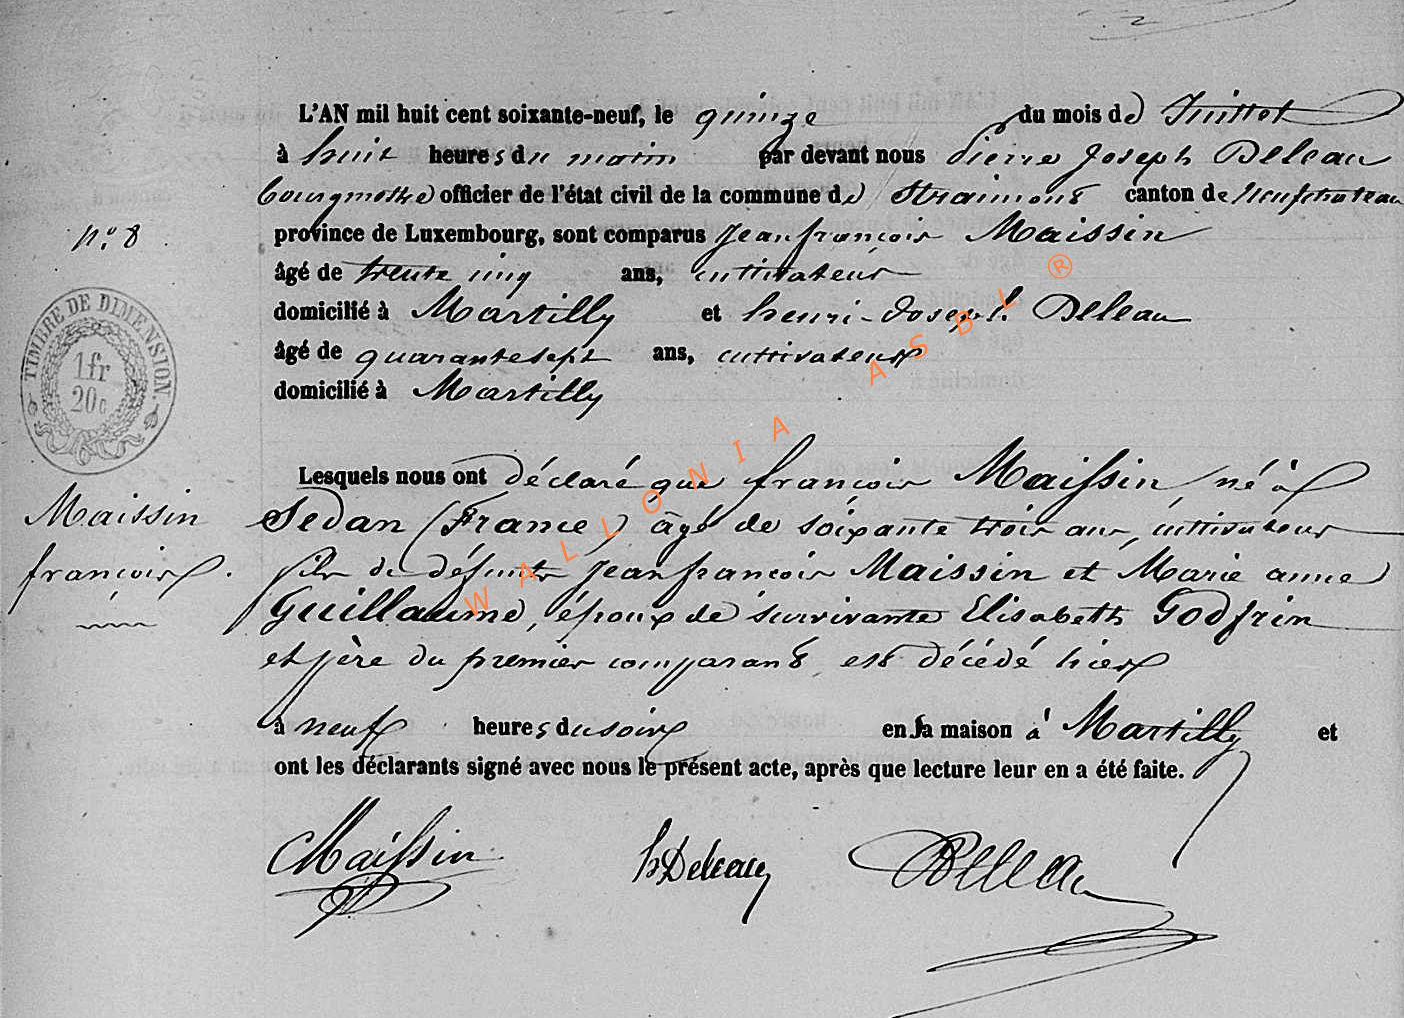 L'AN mil huit cent soixante-neuf, le quinze du mois de Juillet
à huit heures du matin par devant nous Pierre Joseph Deleau
bourgmestre officier de l'état civil de la commune de Straimont canton de Neufchateau
n° 8
province de Luxembourg, sont comparus Jean françois Maissin
âgé de trente cinq ans, cultivateur
domicilié à Martilly et henri-Joseph Deleau
âgé de quarante sept ans, cultivateur
domicilié à Martilly
TIMBRE DE DIMENSION
1fr
20c
Lesquels nous ont déclaré que françois Maissin, né à
Maissin
françois.
Sedan (France) âgé de soixante trois ans, cultivateur
fils de défunts Jean françois Maissin et Marie anne
Guillaume, époux de survivante Elisabeth Godfrin
et père du premier comparant est décédé hier
à neuf heures du soir en sa maison à Martilly et
ont les déclarants signé avec nous le présent acte, après que lecture leur en a été faite.
Maissin h Deleau Deleau
WALLONIA ASBL ®